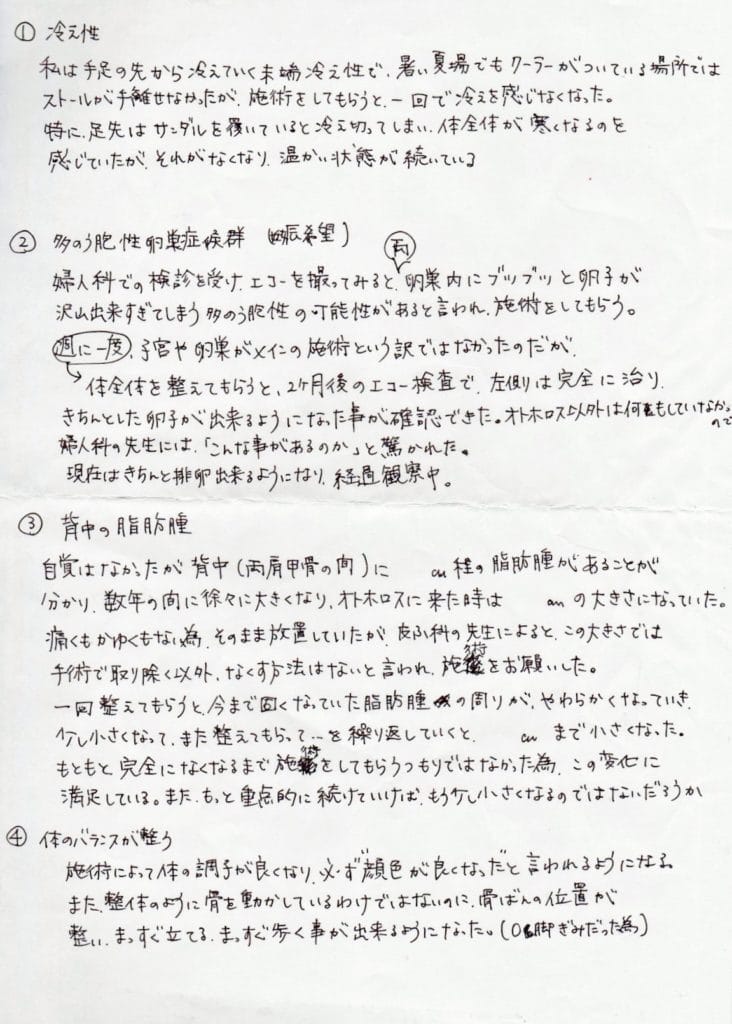 ① 冷え性
私は手足の先から冷えていく末端冷え性で、暑い夏場でもクーラーがついている場所では
ストールが手離せなかったが、施術をしてもらうと、一回で冷えを感じなくなった。
特に、足先はサンダルを履いていると冷え切ってしまい、体全体が寒くなるのを
感じていたが、それがなくなり、温かい状態が続いている
② 多のう胞性卵巣症候群 (妊娠希望)
婦人科での検診を受け、エコーを撮ってみると、両卵巣内にブツブツと卵子が
沢山出来すぎてしまう多のう胞性の可能性があると言われ、施術をしてもらう。
週に一度、子宮や卵巣がメインの施術という訳ではなかったのだが、
→体全体を整えてもらうと、2ヶ月後のエコー検査で、左側は完全に治り、
きちんとした卵子が出来るようになった事が確認できた。オトホロス以外は何もしていなかったので
婦人科の先生には、「こんな事があるのか」と驚かれた。
現在はきちんと排卵出来るようになり、経過観察中。
③ 背中の脂肪腫
自覚はなかったが背中(両肩甲骨の間)に cm程の脂肪腫があることが
分かり、数年の間に徐々に大きくなり、オトホロスに来た時は cmの大きさになっていた。
痛くもかゆくもない為、そのまま放置していたが、皮ふ科の先生によると、この大きさでは
手術で取り除く以外、なくす方法はないと言われ、施術をお願いした。
一回整えてもらうと、今まで固くなっていた脂肪腫の周りが、やわらかくなっていき、
少し小さくなって、また整えてもらって…を繰り返していくと、 cmまで小さくなった。
もともと完全になくなるまで施術をしてもらうつもりではなかった為、この変化に
満足している。また、もっと重点的に続けていけば、もう少し小さくなるのではないだろうか
④ 体のバランスが整う
施術によって体の調子が良くなり、必ず"顔色が良くなった"と言われるようになる。
また、整体のように骨を動かしているわけではないのに、骨ばんの位置が
整い、まっすぐ立てる、まっすぐ歩く事が出来るようになった。(O脚ぎみだった為)